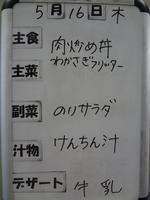 5月16日木
主食 肉炒め丼
主菜 わかさぎフリッター
副菜 のりサラダ
汁物 けんちん汁
デザート 牛乳